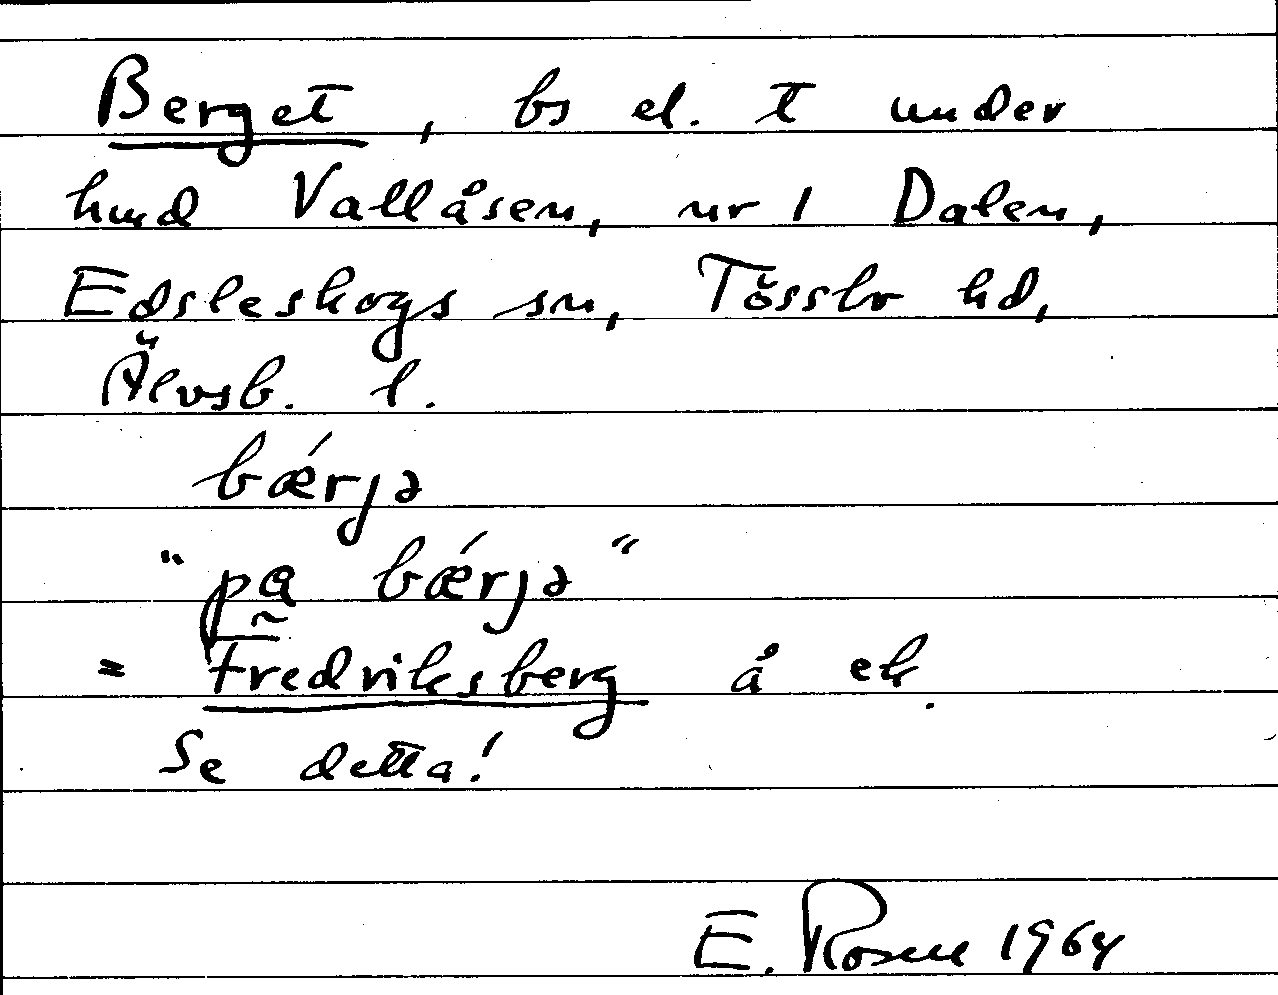 Berget, bs el. t under
hmd Vallåsen, nr 1 Dalen,
Edsleskogs sn, Tössbo hd,
Älvsb. l.
bǽrjə
"pa bǽrjə"
= Fredriksberg å ek.
Se detta!
E. Rosen 1964